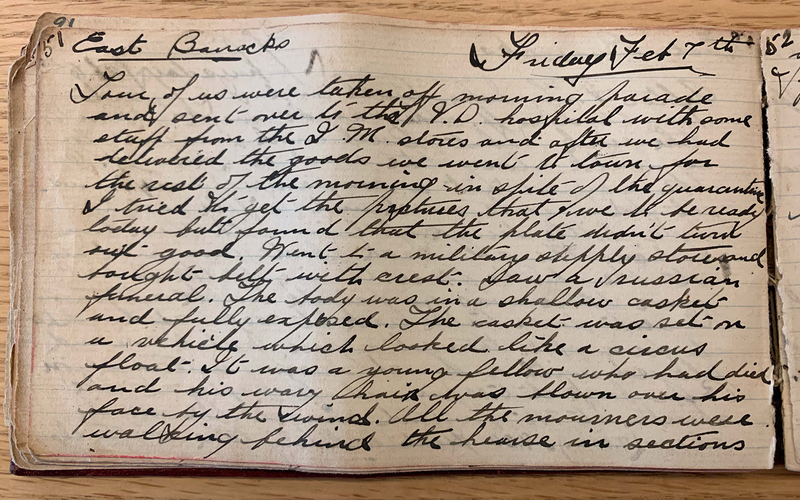 91
51 East Barracks Friday Feb 7th
Four of us were taken off morning parade
and sent over to the V.D. hospital with some
stuff from the Q.M. stores and after we had
delivered the goods we went to town for
the rest of the morning in spite of the quarantine
I tried to get the pictures that were to be ready
today but found that the plate didn't turn
out good. Went to a military supply store and
bought belt with crest. Saw a russian
funeral. The body was in a shallow casket
and fully exposed. The casket was set on
a vehicle which looked like a circus
float. It was a young fellow who had died
and his wavy hair was blown over his
face by the wind. All the mourners were
walking behind the hearse in sections
52